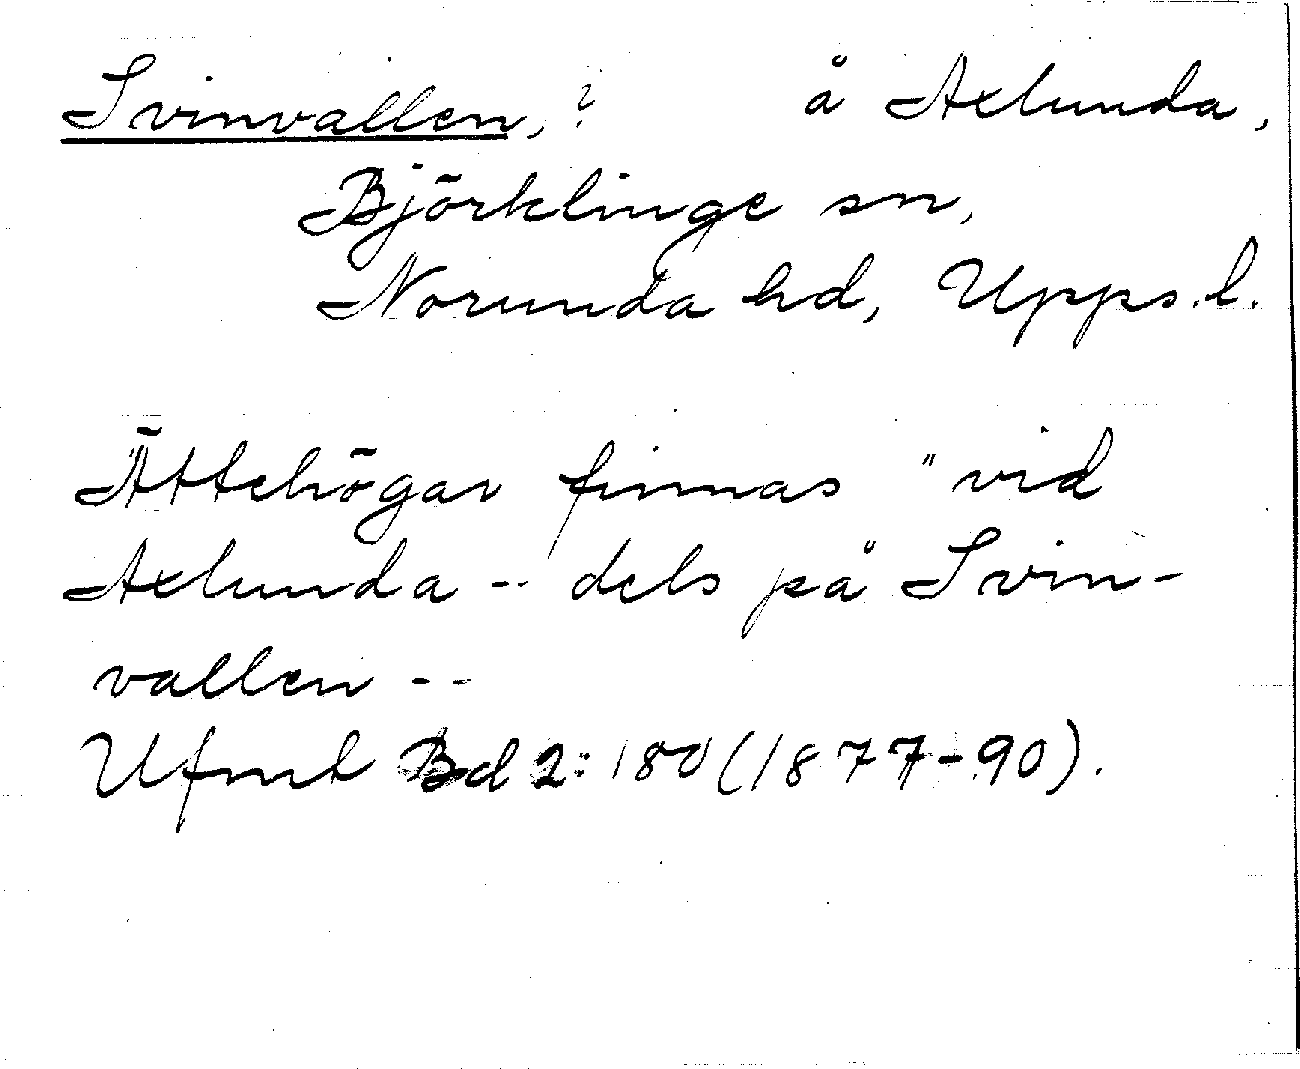 Svinvallen, ? å Axlunda,
Björklinge sn,
Norunda hd, Upps.l.
Ättehögar finnas "vid
Axlunda -- dels på Svin-
vallen --
Ufmt Bd 2: 180 (1877-90).